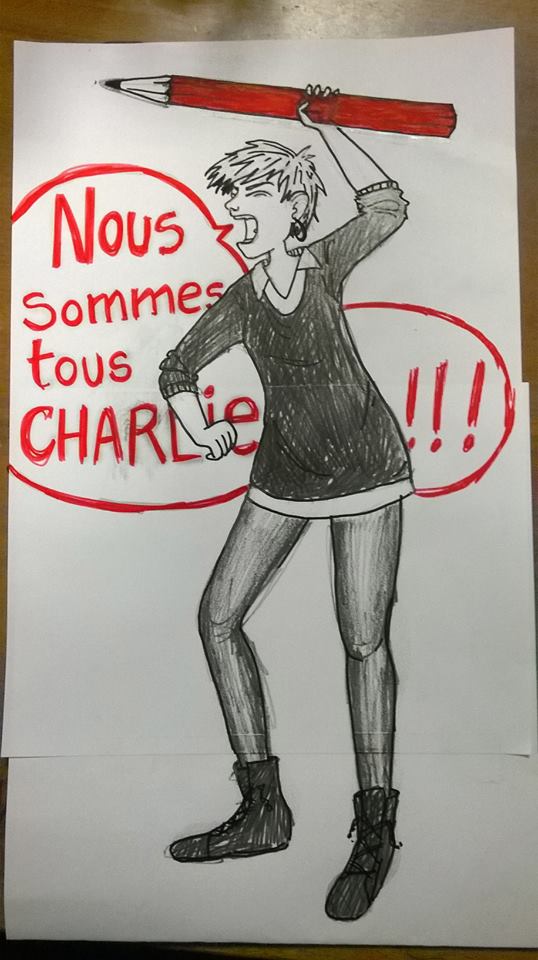 Nous
sommes
tous
CHARLie !!!